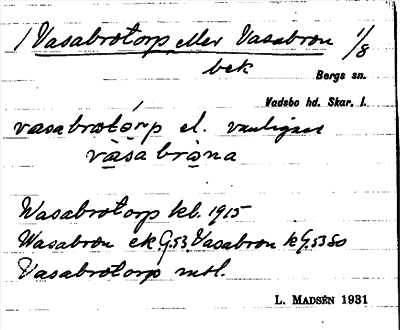 1 Vasabrotorp eller Vasabron 1/8
bek
Bergs sn.
Vadsbo hd. Skar. l.
vasabrotórp el. vanligast
vàsabròna
Wasabrotorp kb. 1915
Wasabron ek G.53. Vasabron k G.53 So
Vasabrotorp mtl.
L. MADSÉN 1931